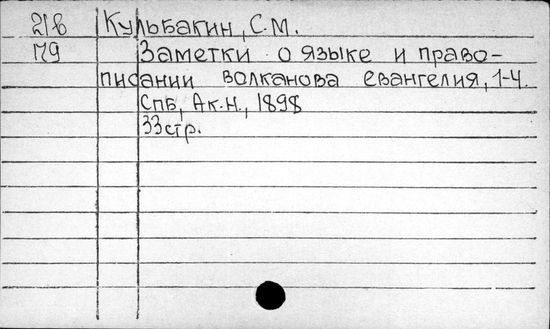 21б Кульбакин, С.М.
179 Заметки о языке и право-
писании волканова евангелия, 1-4.
Спб, Ак.Н., 1898
33стр.